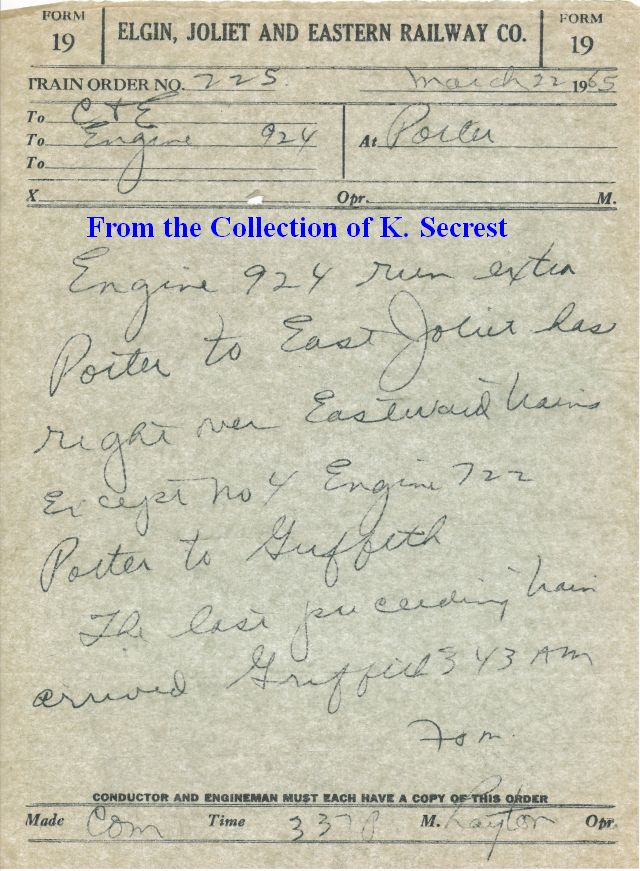 FORM 19 ELGIN, JOLIET AND EASTERN RAILWAY CO. FORM 19
TRAIN ORDER NO. 225 March 22 1965
To C & E
To Engine 924 At Porter
To
X Opr. M.
From the Collection of K. Secrest
Engine 924 run extra
Porter to East Joliet has
right over Eastward trains
Except No 4 Engine 722
Porter to Griffith
The last preceeding train
arrived Griffith 3 43 AM
CONDUCTOR AND ENGINEMAN MUST EACH HAVE A COPY OF THIS ORDER
Made Com Time 337 P M. Layton Opr.